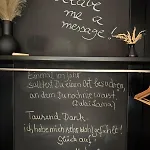 me a
message!
Einmal im Jahr
solltest Du einen Ort besuchen,
an dem Du noch nie warst
(Dalai Lama)
Tausend Dank
ich habe mich sehr wohl gefühlt!
Glück auf!